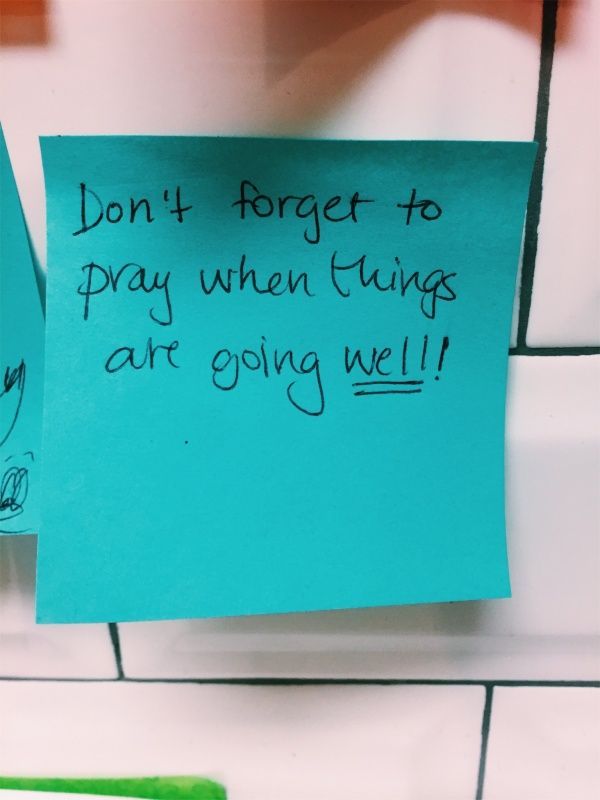 Don't forget to
pray when things
are going well!